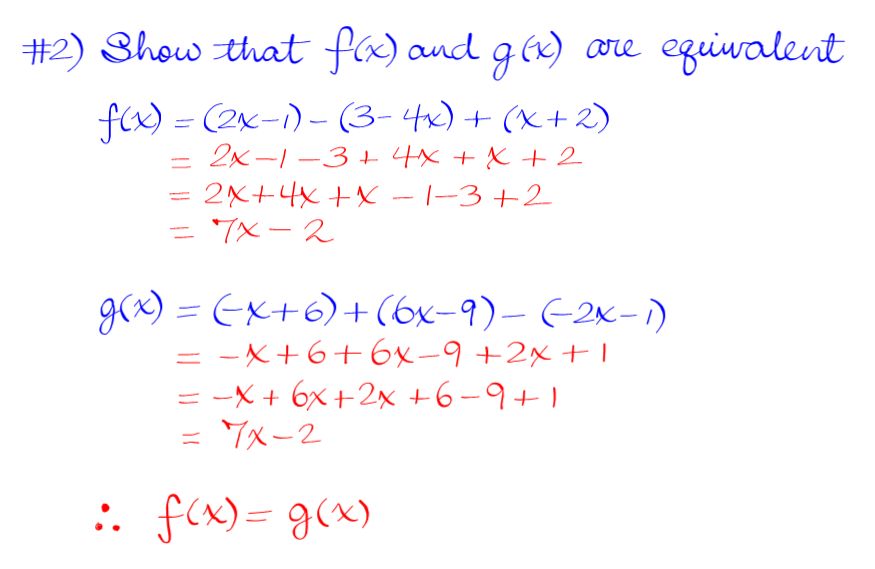 #2) Show that f(x) and g(x) are equivalent
f(x) = (2x-1) - (3-4x) + (x+2)
= 2x-1-3+4x+x+2
= 2x+4x+x-1-3+2
= 7x-2
g(x) = (-x+6)+(6x-9)-(-2x-1)
= -x+6+6x-9+2x+1
= -x+6x+2x+6-9+1
= 7x-2
∴ f(x) = g(x)